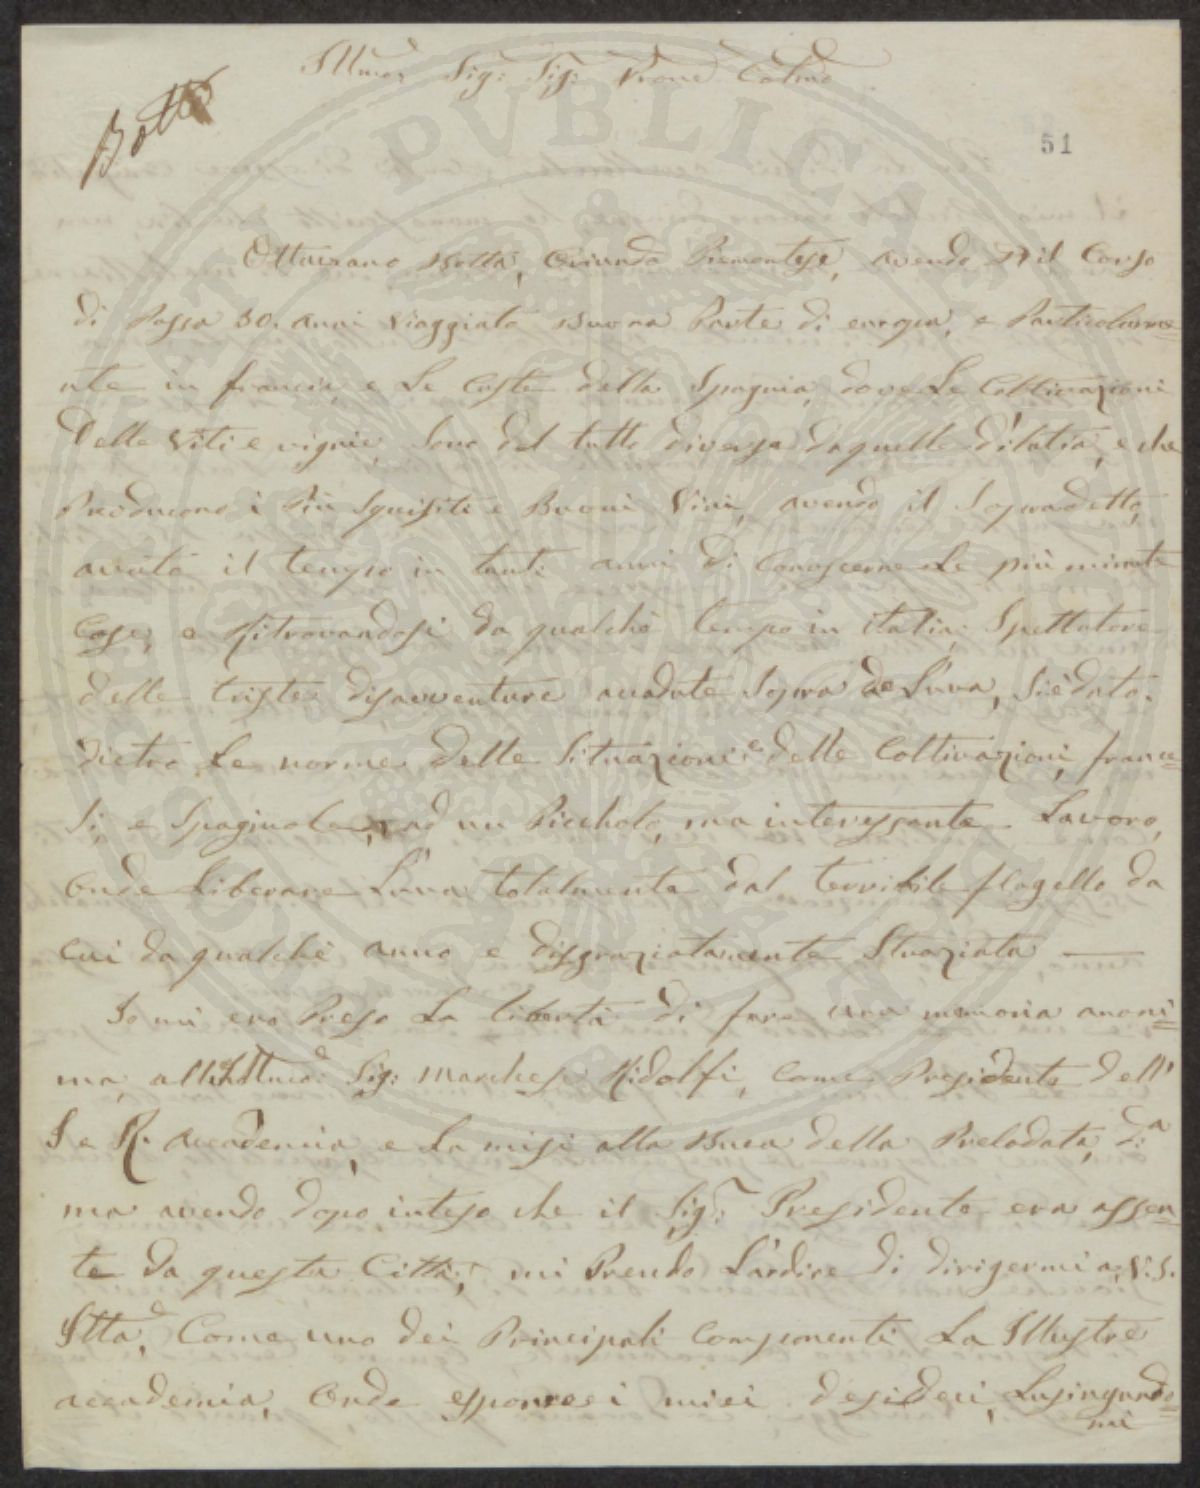 Illmo: Sig: Sig: Prone Colmo
Botta
51
Ottaviano Botta, Oriundo Piemontese, avendo il Corso
di Passa 30. anni viaggiato Buona Parte di europa, e Particolarme=
nte in francia, e Le Coste della Spagnia, dove Le Coltivazioni
Delle viti e vignie, sono del tutto diversa daquelle d'italia, e che
Producono i Più squisiti e Buoni Vini, avendo il Sopradetto,
avuto il tempo in tanti anni di Conoscerne Le più minute
Cose, e Ritrovandosi da qualche tempo in italia, Spettatore
delle triste disavventure accadute sopra de L'uva, siè dato.
dietro Le norme delle Situazioni e delle Coltivazioni, france=
si, e Spagniole, ad un Piccholo, ma interessante Lavoro,
Onde Liberare L'uva totalmente dal terribile flagello da
cui da qualche anno e disgraziatamente Straziata —
Io mi ero Preso La libertà di fare una memoria anoni=
ma, all Illmo: Sig: Marchese Ridolfi, Come Presidente dell'
I e R. Accademia, e La misi alla Buca della Prelodata, d.a
ma avendo dopo inteso che il Sig.r Presidente era assen=
te da questa Città, mi Prendo L'ardire di dirigermi a V.S.
Illa, Come uno dei Principali Componenti La Illustre
accademia, Onde esporre i miei desideri, Lusingando=
mi